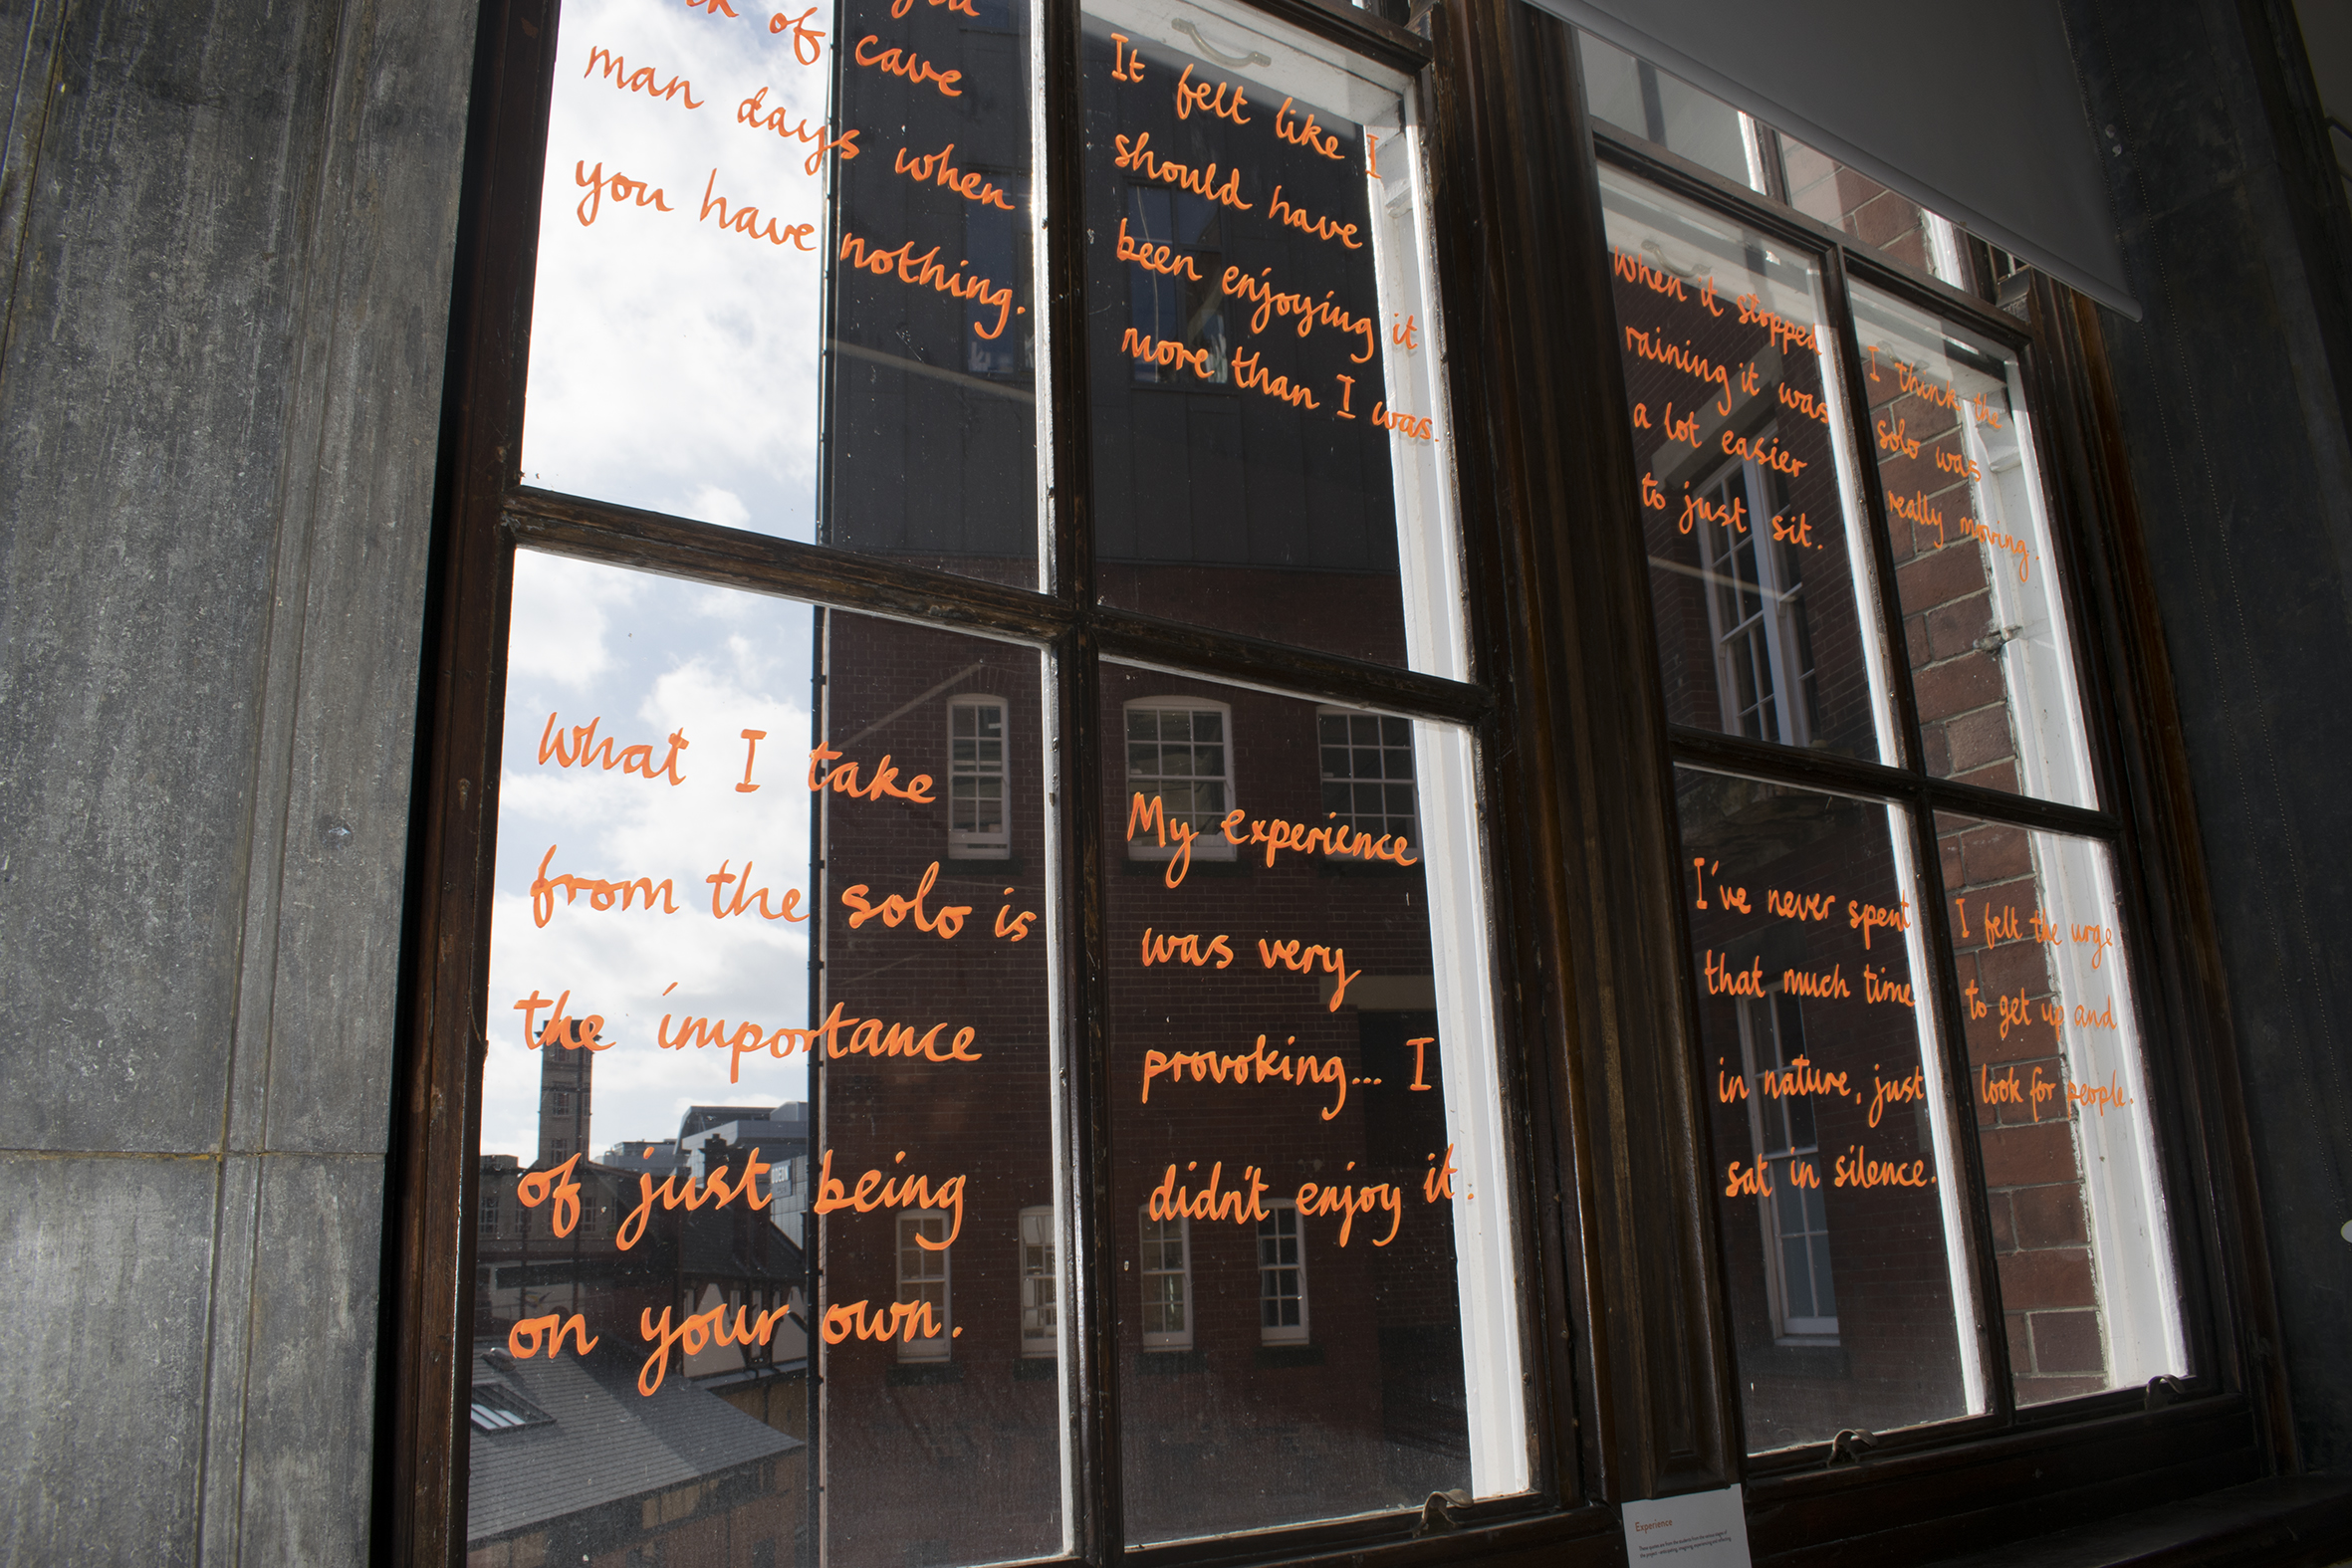 of cave
man days when
you have nothing.
It felt like I
should have
been enjoying it
more than I was.
When it stopped
raining it was
a lot easier
to just sit.
I think the
solo was
really moving.
What I take
from the solo is
the importance
of just being
on your own.
My experience
was very
provoking... I
didn't enjoy it.
I've never spent
that much time
in nature, just
sat in silence.
I felt the urge
to get up and
look for people.
ODEON
Experience